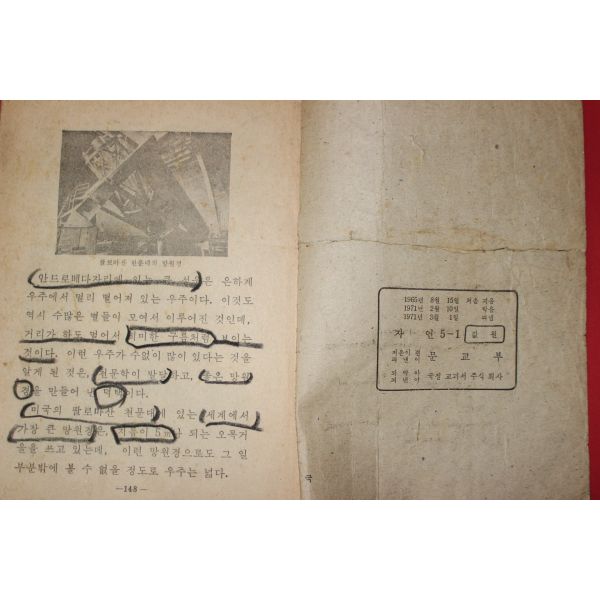 팔로마산 천문대의 망원경
안드로메다자리에 있는 큰 성운은 은하계
우주에서 멀리 떨어져 있는 우주이다. 이것도
역시 수많은 별들이 모여서 이루어진 것인데,
거리가 하도 멀어서 희미한 구름처럼 보이는
것이다. 이런 우주가 수없이 많이 있다는 것을
알게 된 것은, 천문학이 발달하고, 좋은 망원
경을 만들어 낸 덕택이다.
미국의 팔로마산 천문대에 있는 세계에서
가장 큰 망원경은, 지름이 5m나 되는 오목거
울을 쓰고 있는데, 이런 망원경으로도 그 일
부분밖에 볼 수 없을 정도로 우주는 넓다.
—148—
1965년 8월 15일 처음 지음
1971년 2월 10일 박음
1971년 3월 1일 펴냄
자 연 5-1 값 원
지은이 겸 펴낸이 문 교 부
국정 교과서 주식 회사
국